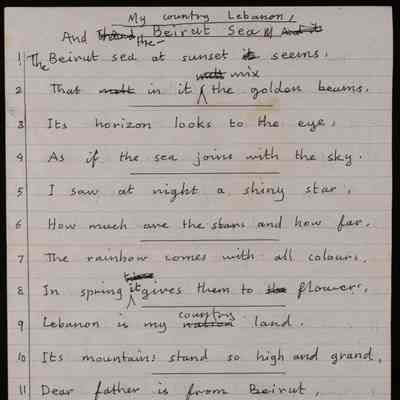 My country Lebanon,
And the Beirut Sea
1 The Beirut sea at sunset seems,
2 That in it mix the golden beams.
3 Its horizon looks to the eye,
4 As if the sea joins with the sky.
5 I saw at night a shiny star,
6 How much are the stars and how far.
7 The rainbow comes with all colours,
8 In spring it gives them to flowers,
9 Lebanon is my country land.
10 Its mountains stand so high and grand,
11 Dear father is from Beirut,